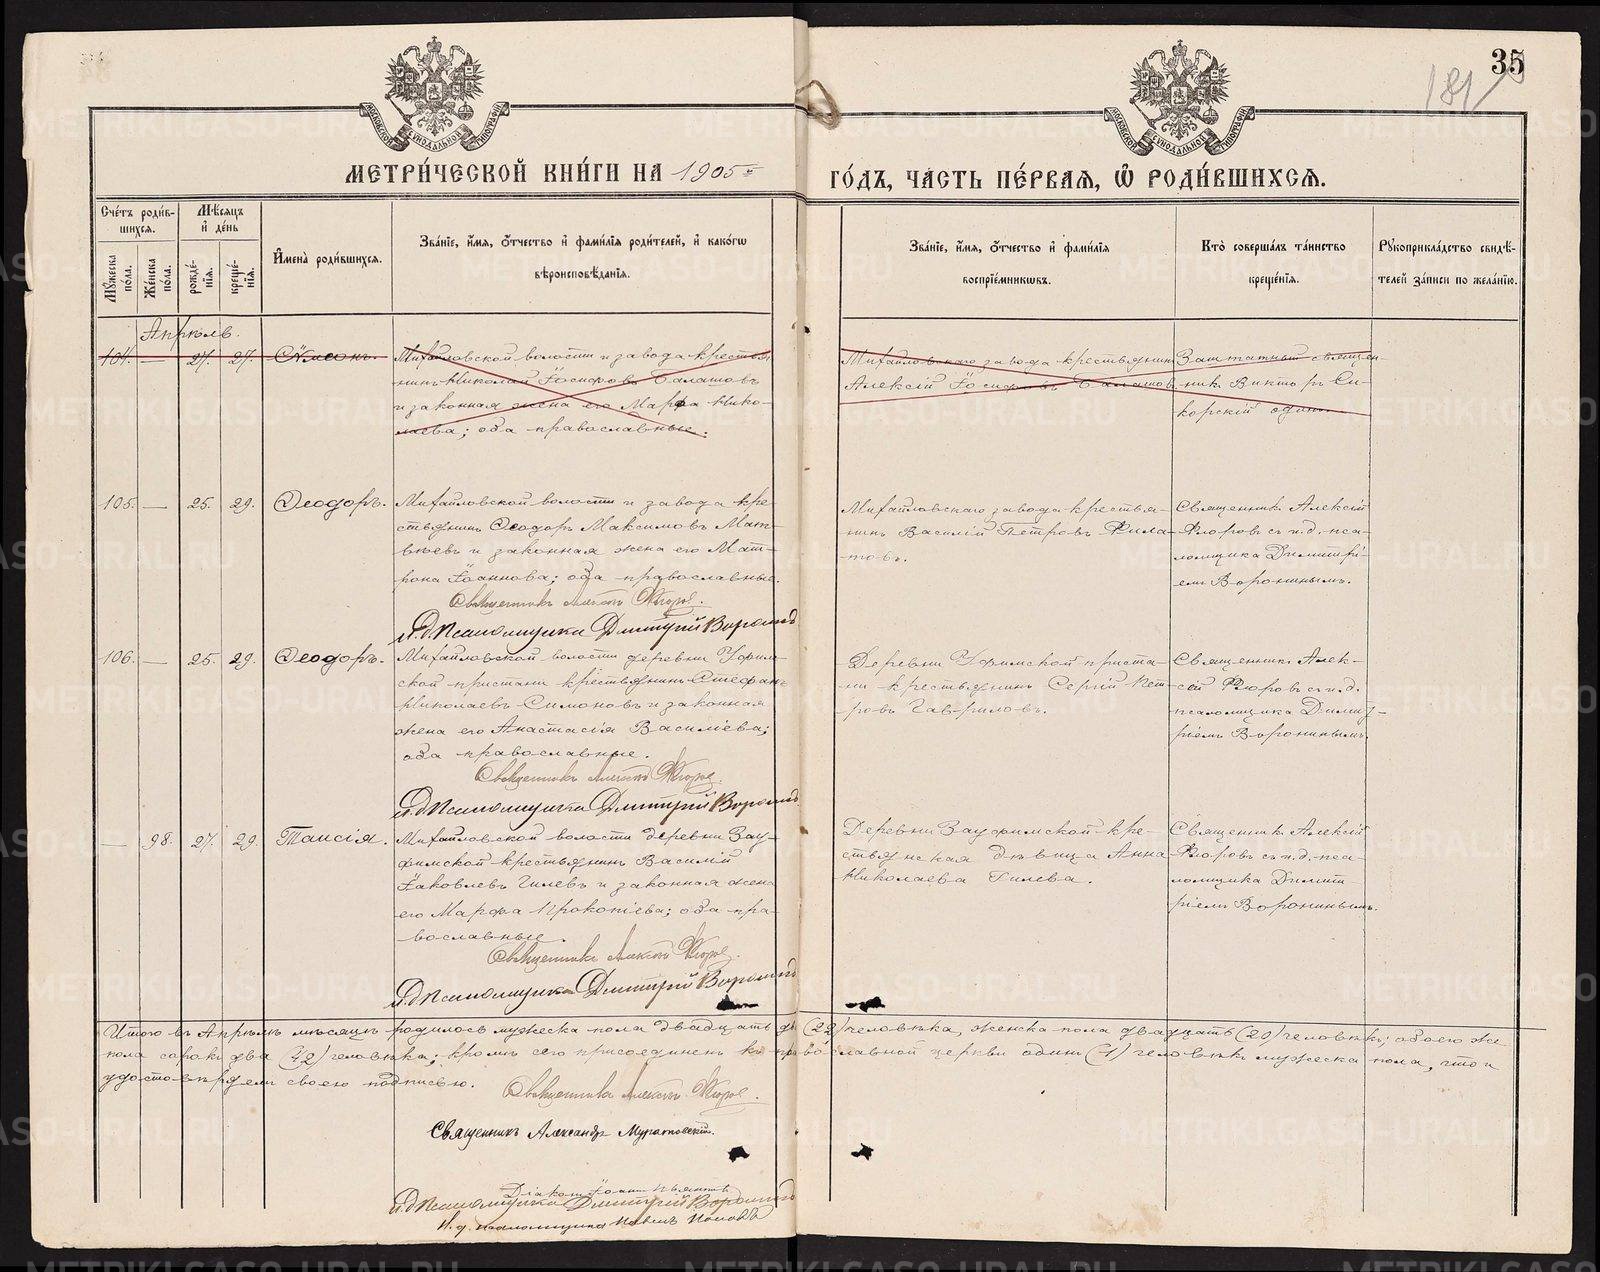 35
181
МОСКОВСКОЙ СѴНОДАЛЬНОЙ ТИПОГРАФІИ
МОСКОВСКОЙ СѴНОДАЛЬНОЙ ТИПОГРАФІИ
МЕТРИ́ЧЕСКОЙ КНИ́ГИ НА 1905 й ГО́ДЪ, ЧА́СТЬ ПЕ́РВАѦ, Ѡ҆ РОДИ́ВШИХСѦ.
Сче́тъ роди́в-
шихся.
Мѣ́сяцъ
и҆ де́нь
Мꙋ́жеска
по́ла.
Же́нска
по́ла.
рожде́-
нїѧ.
креще́-
нїѧ.
И҆мена̀ роди́вшихся.
Зва́нїе, и҆́мѧ, ѻ҆́тчество и҆ фами́лїѧ роди́телей, и҆ како́гѡ
вѣроисповѣ́данїѧ.
Зва́нїе, и҆́мѧ, ѻ҆́тчество и҆ фами́лїѧ
воспрїе́мникѡвъ.
Кто̀ соверша́лъ та́инство
креще́нїѧ.
Рꙋкоприкла́дство свидѣ́-
телей за́писи по жела́нїю.
Апрѣль.
104. — 27. 27. Сѵмеонъ.
Михайловской волости и завода крестья-
нинъ Николай Іосифовъ Балашовъ
и законная жена его Марфа Нико-
лаева; оба православные.
Михайловскаго завода крестьянинъ
Алексій Іосифовъ Балашовъ
Заштатный священ-
никъ Викторъ Си-
корскій одинъ.
105. — 25. 29. Ѳеодоръ.
Михайловской волости и завода кре-
стьянинъ Ѳеодоръ Максимовъ Мат-
вѣевъ и законная жена его Мат-
рона Іоаннова; оба православные.
Священникъ Алексѣй Флоровъ.
И. д. Псаломщика Димитрій Воронинъ
Михайловскаго завода крестья-
нинъ Василій Петровъ Фила-
товъ.
Священникъ Алексій
Флоровъ съ и.д. пса-
ломщика Димитрі-
емъ Воронинымъ.
106. — 25. 29. Ѳеодоръ.
Михайловской волости деревни Уфим-
ской пристани крестьянинъ Стефанъ
Николаевъ Симоновъ и законная
жена его Анастасія Васильева;
оба православные.
Священникъ Алексѣй Флоровъ.
И. д. Псаломщика Димитрій Воронинъ
Деревни Уфимской приста-
ни крестьянинъ Сергій Пет-
ровъ Гавриловъ.
Священникъ Алек-
сій Флоровъ съ и.д.
псаломщика Димит-
ріемъ Воронинымъ.
— 98. 27. 29. Таисія.
Михайловской волости деревни Зау-
фимской крестьянинъ Василій
Іаковлевъ Гилевъ и законная жена
его Марфа Прокопіева; оба пра-
вославные.
Священникъ Алексѣй Флоровъ.
И. д. Псаломщика Димитрій Воронинъ
Деревни Зауфимской кре-
стьянская дѣвица Анна
Николаева Гилева.
Священникъ Алексій
Флоровъ съ и.д. пса-
ломщика Димит-
ріемъ Воронинымъ.
Итого въ Апрѣлѣ мѣсяцѣ родилось мужеска пола двадцать два (22) человѣка, женска пола двадцать (20) человѣкъ; обоего же
пола сорокъ два (42) человѣка; кромѣ сего присоединенъ къ православной церкви одинъ (1) человѣкъ мужеска пола, что и
удостовѣряемъ своею подписью.
Священникъ Алексѣй Флоровъ.
Священникъ Александръ Муратовскій.
Діаконъ Іоаннъ
И. д. Псаломщика Димитрій Воронинъ
И. д. псаломщика Павелъ Поповъ
METRIKI.GASO-URAL.RU